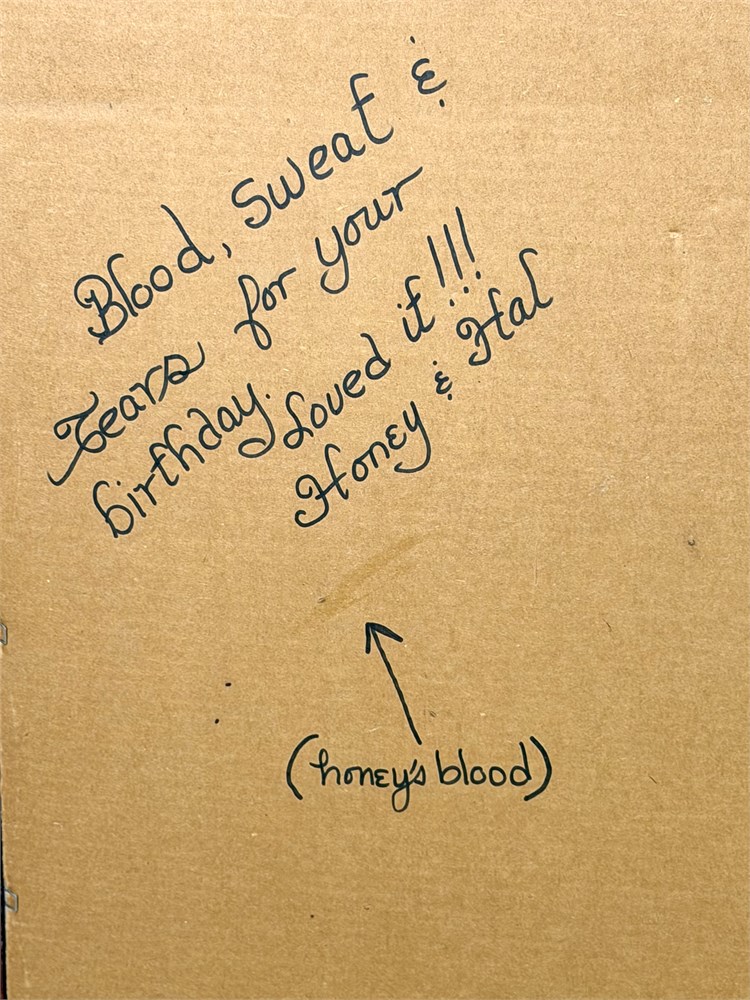 Blood, Sweat &
Tears for your
birthday. Loved it!!!
Honey & Hal
(honey's blood)